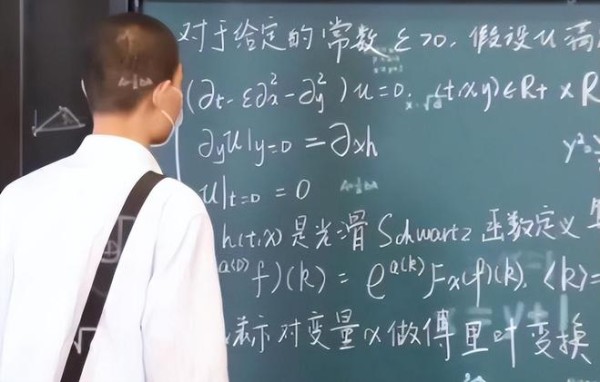 对于给定的常数 ε>0, 假设 u 满
(∂t - ε∂x² - ∂y²)u=0, (t,x,y)∈R+ × R
∂yu|y=0 = ∂xh
u|t=0 = 0
h(t,x)是光滑 Schwartz 函数定义
a(D) f)(k) = e^a(k) Fx(f)(k), ⟨k⟩=
表示对变量 x 做傅里叶变换